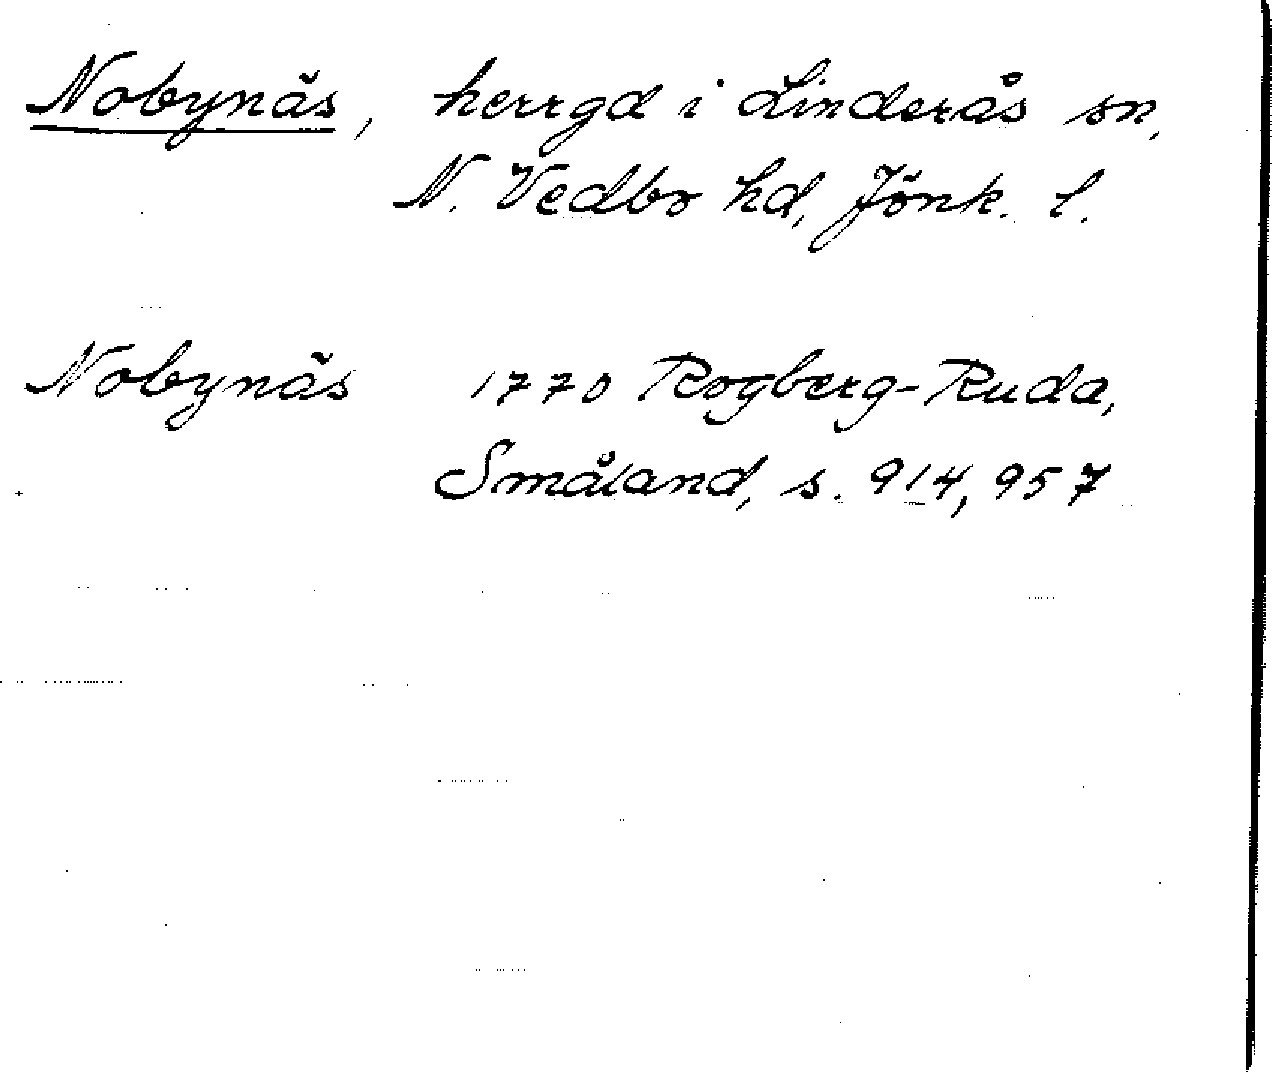 Nobynäs, herrgd i Linderås sn,
N. Vedbo hd, Jönk. l.
Nobynäs 1770 Rogberg-Ruda,
Småland, s. 914, 957